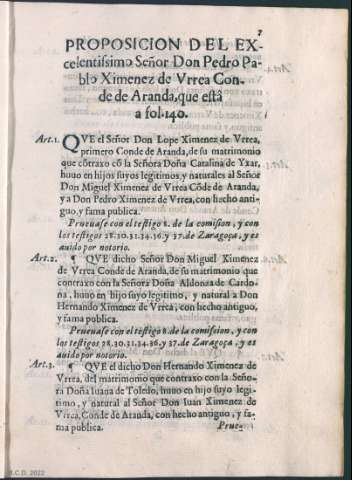 7
PROPOSICION DEL EX-
celentissimo Señor Don Pedro Pa-
blo Ximenez de Vrrea Con-
de de Aranda, que està
a fol. 140.
Art. 1. QVE el Señor Don Lope Ximenez de Vrrea,
primero Conde de Aranda, de su matrimonio
que cõtraxo cõ la Señora Doña Catalina de Yxar,
huuo en hijos suyos legitimos, y naturales al Señor
Don Miguel Ximenez de Vrrea Cõde de Aranda,
y a Don Pedro Ximenez de Vrrea, con hecho anti-
guo, y fama publica.
Prueuase con el testigo 8. de la comision, y con
los testigos 28. 30. 31. 34. 36. y 37. de Zaragoça, y es
auido por notorio.
Art. 2. ¶ QVE dicho Señor Don Miguel Ximenez
de Vrrea Conde de Aranda, de su matrimonio que
contraxo con la Señora Doña Aldonza de Cardo-
na, huuo en hijo suyo legitimo, y natural a Don
Hernando Ximenez de Vrrea, con hecho antiguo,
y fama publica.
Prueuase con el testigo 8. de la comission, y con
los testigos 28. 30. 31. 34. 36. y 37. de Zaragoça, y es
auido por notorio.
Art. 3. ¶ QVE el dicho Don Hernando Ximenez de
Vrrea, del matrimonio que contraxo con la Seño-
ra Doña Iuana de Toledo, huuo en hijo suyo legi-
timo, y natural al Señor Don Iuan Ximenez de
Vrrea, Conde de Aranda, con hecho antiguo, y fa-
ma publica. Prue-
A.C.D. 2022